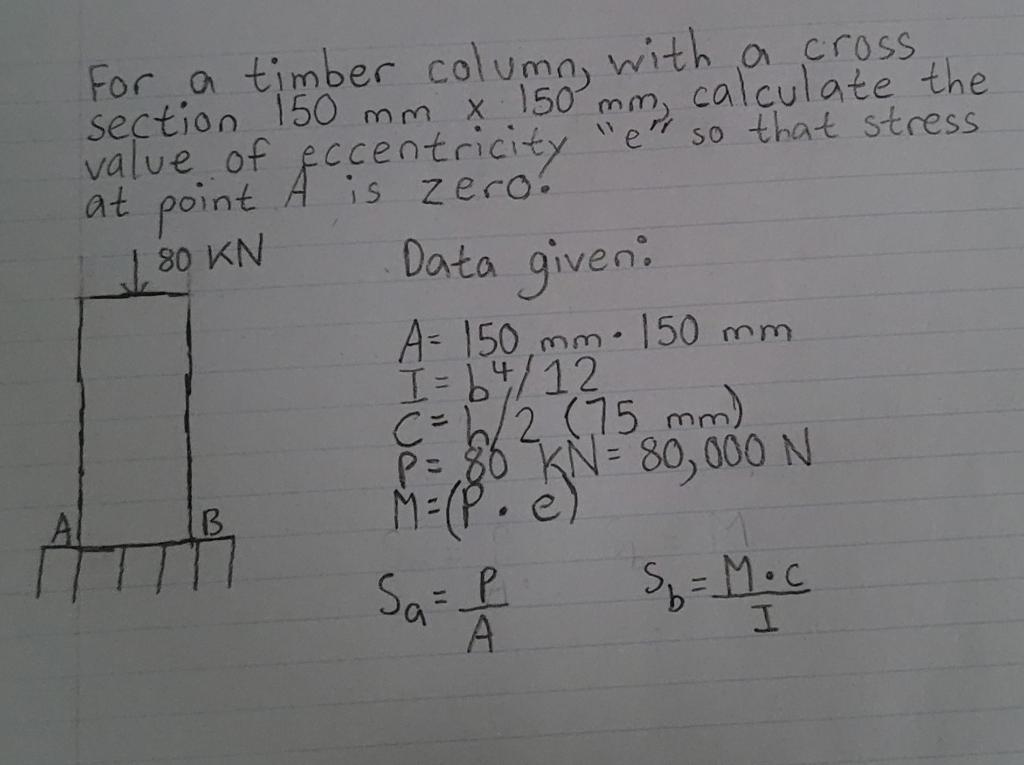 For a timber column, with a cross
section 150 mm x 150 mm, calculate the
value of eccentricity "e" so that stress
at point A is zero!
80 KN
Data given:
A= 150 mm · 150 mm
I = b⁴/12
C= b/2 (75 mm)
P= 80 KN= 80,000 N
M=(P · e)
A
B
Sₐ = P/A
S_b = M·c/I